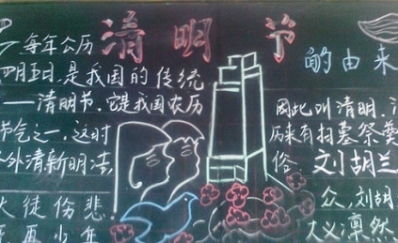 清明节的由来
每年公历
四月五日,是我国的传统
——清明节,它是我国农历
节气之一,这时
外清新明洁,
因此叫清明,
历来有扫墓祭奠
俗
刘胡兰
大徒伤悲
众,刘胡
大义凛然